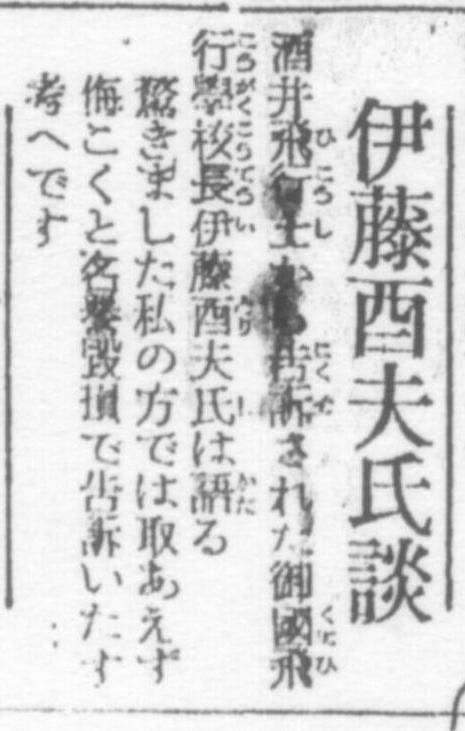 伊藤酉夫氏談
酒井飛行士から告訴された御國飛
行學校長伊藤酉夫氏は語る
驚きました私の方では取あえず
侮こくと名譽毀損で告訴いたす
考へです